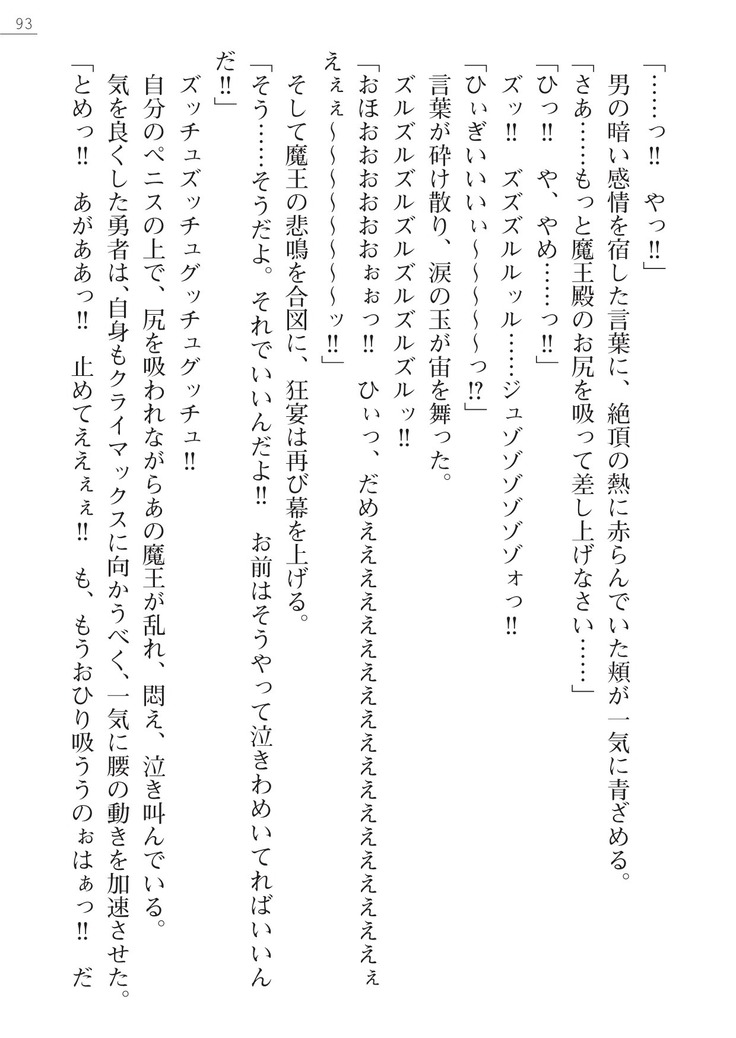 93
「……っ!!　やっ!!」
男の暗い感情を宿した言葉に、絶頂の熱に赤らんでいた頬が一気に青ざめる。
「さあ……もっと魔王殿のお尻を吸って差し上げなさい……」
「ひっ!!　や、やめ……っ!!」
ズッ!!　ズズズルルッル……ジュゾゾゾゾゾゾォっ!!
「ひぃぎいいいぃ～～～～～っ!?」
言葉が砕け散り、涙の玉が宙を舞った。
ズルズルズルズルズルズルズルッ!!
「おほおおおおおおおぉぉっ!!　ひぃっ、だめええええええええええええええええええぇ
えぇぇ～～～～～～～～ッ!!」
そして魔王の悲鳴を合図に、狂宴は再び幕を上げる。
「そう……そうだよ。それでいいんだよ!!　お前はそうやって泣きわめいてればいいん
だ!!」
ズッチュズッチュグッチュグッチュ!!
自分のペニスの上で、尻を吸われながらあの魔王が乱れ、悶え、泣き叫んでいる。
気を良くした勇者は、自身もクライマックスに向かうべく、一気に腰の動きを加速させた。
「とめっ!!　あがああっ!!　止めてええぇぇ!!　も、もうおひり吸ううのぉはぁっ!!　だ